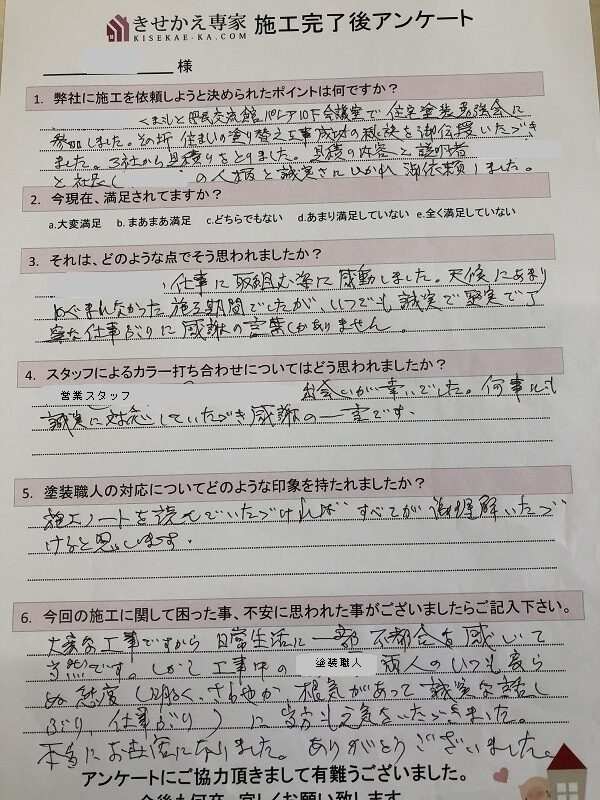 きせかえ専家 施工完了後アンケート
KISEKAE-KA.COM
様
1. 弊社に施工を依頼しようと決められたポイントは何ですか？
くまもと県民交流館パレア10F会議室で 住宅塗装勉強会に
参加しました。その折 住まいの塗り替え工事成功の秘訣を御伝授いただき
ました。3社から見積りをとりました。見積の内容と説明者
と社長( の人柄と誠実さにひかれ 御依頼しました。
2. 今現在、満足されてますか？
a.大変満足 b. まあまあ満足 c.どちらでもない d.あまり満足していない e.全く満足していない
3. それは、どのような点でそう思われましたか？
仕事に取組む姿に感動しました。天候にあまり
めぐまれなかった施工期間でしたが、いつでも誠実で堅実で丁
寧な仕事ぶりに感謝の言葉しかありません。
4. スタッフによるカラー打ち合わせについてはどう思われましたか？
営業スタッフ 出会いが幸いでした。何事にも
誠実に対応していただき感謝の一言です。
5. 塗装職人の対応についてどのような印象を持たれましたか？
施工ノートを読んでいただければ すべてが御理解いただ
けると思います。
6. 今回の施工に関して困った事、不安に思われた事がございましたらご記入下さい。
大変な工事ですから 日常生活に一部不都合を感じて
当然です。しかし工事中の 塗装職人 両人のいつも変ら
ぬ態度（明るく、さわやか、根気があって誠実な話し
ぶり、仕事ぶり）に 当方も元気をいただきました。
本当にお世話になりました。ありがとうございました。
アンケートにご協力頂きまして有難うございました。
今後も何卒、宜しくお願い致します。